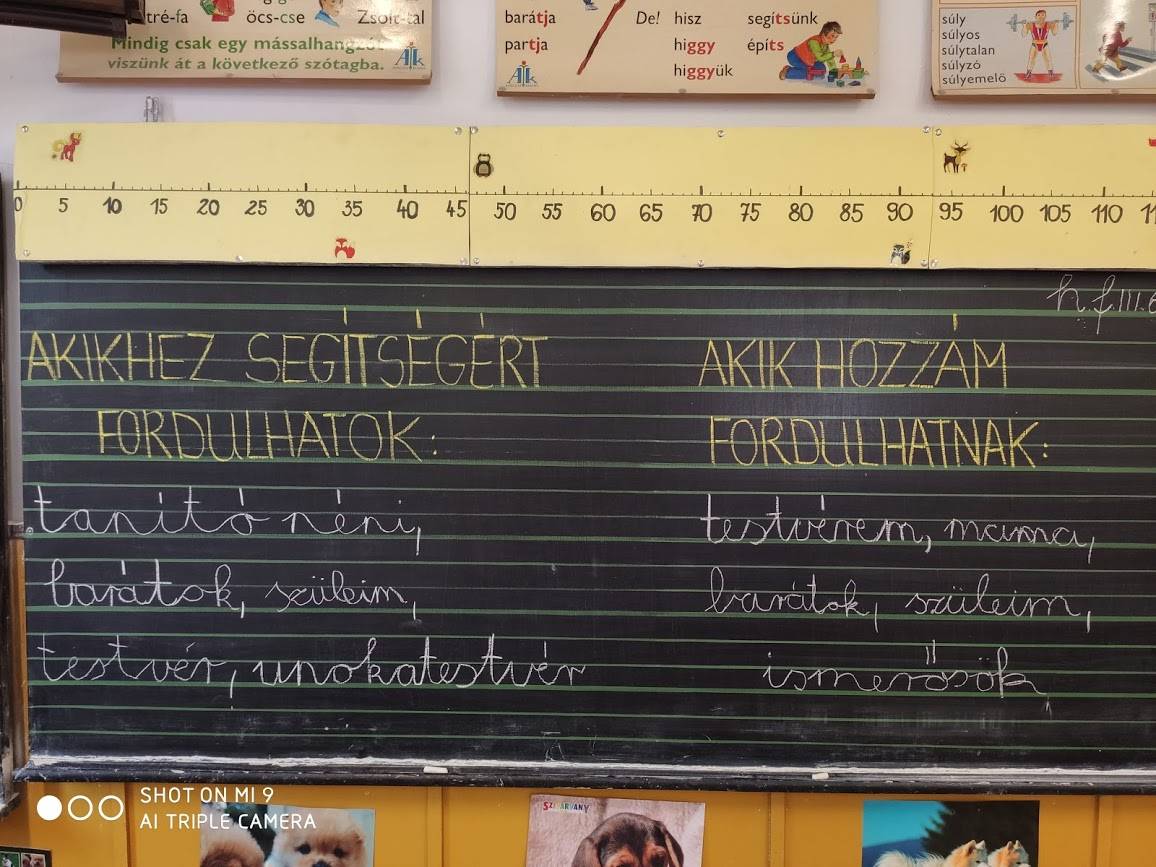 öcs-cse
Mindig csak egy mássalhangzót
viszünk át a következő szótagba.
barátja De! hisz segítsünk
partja higgy építs
higgyük
súly
súlyos
súlytalan
súlyzó
súlyemelő
0 5 10 15 20 25 30 35 40 45 50 55 60 65 70 75 80 85 90 95 100 105 110
h.f.III.6
AKIKHEZ SEGÍTSÉGÉRT
FORDULHATOK:
tanító néni,
barátok, szüleim,
testvér, unokatestvér
AKIK HOZZÁM
FORDULHATNAK:
testvérem, mama,
barátok, szüleim,
ismerősök,
SZIVÁRVÁNY
SHOT ON MI 9
AI TRIPLE CAMERA